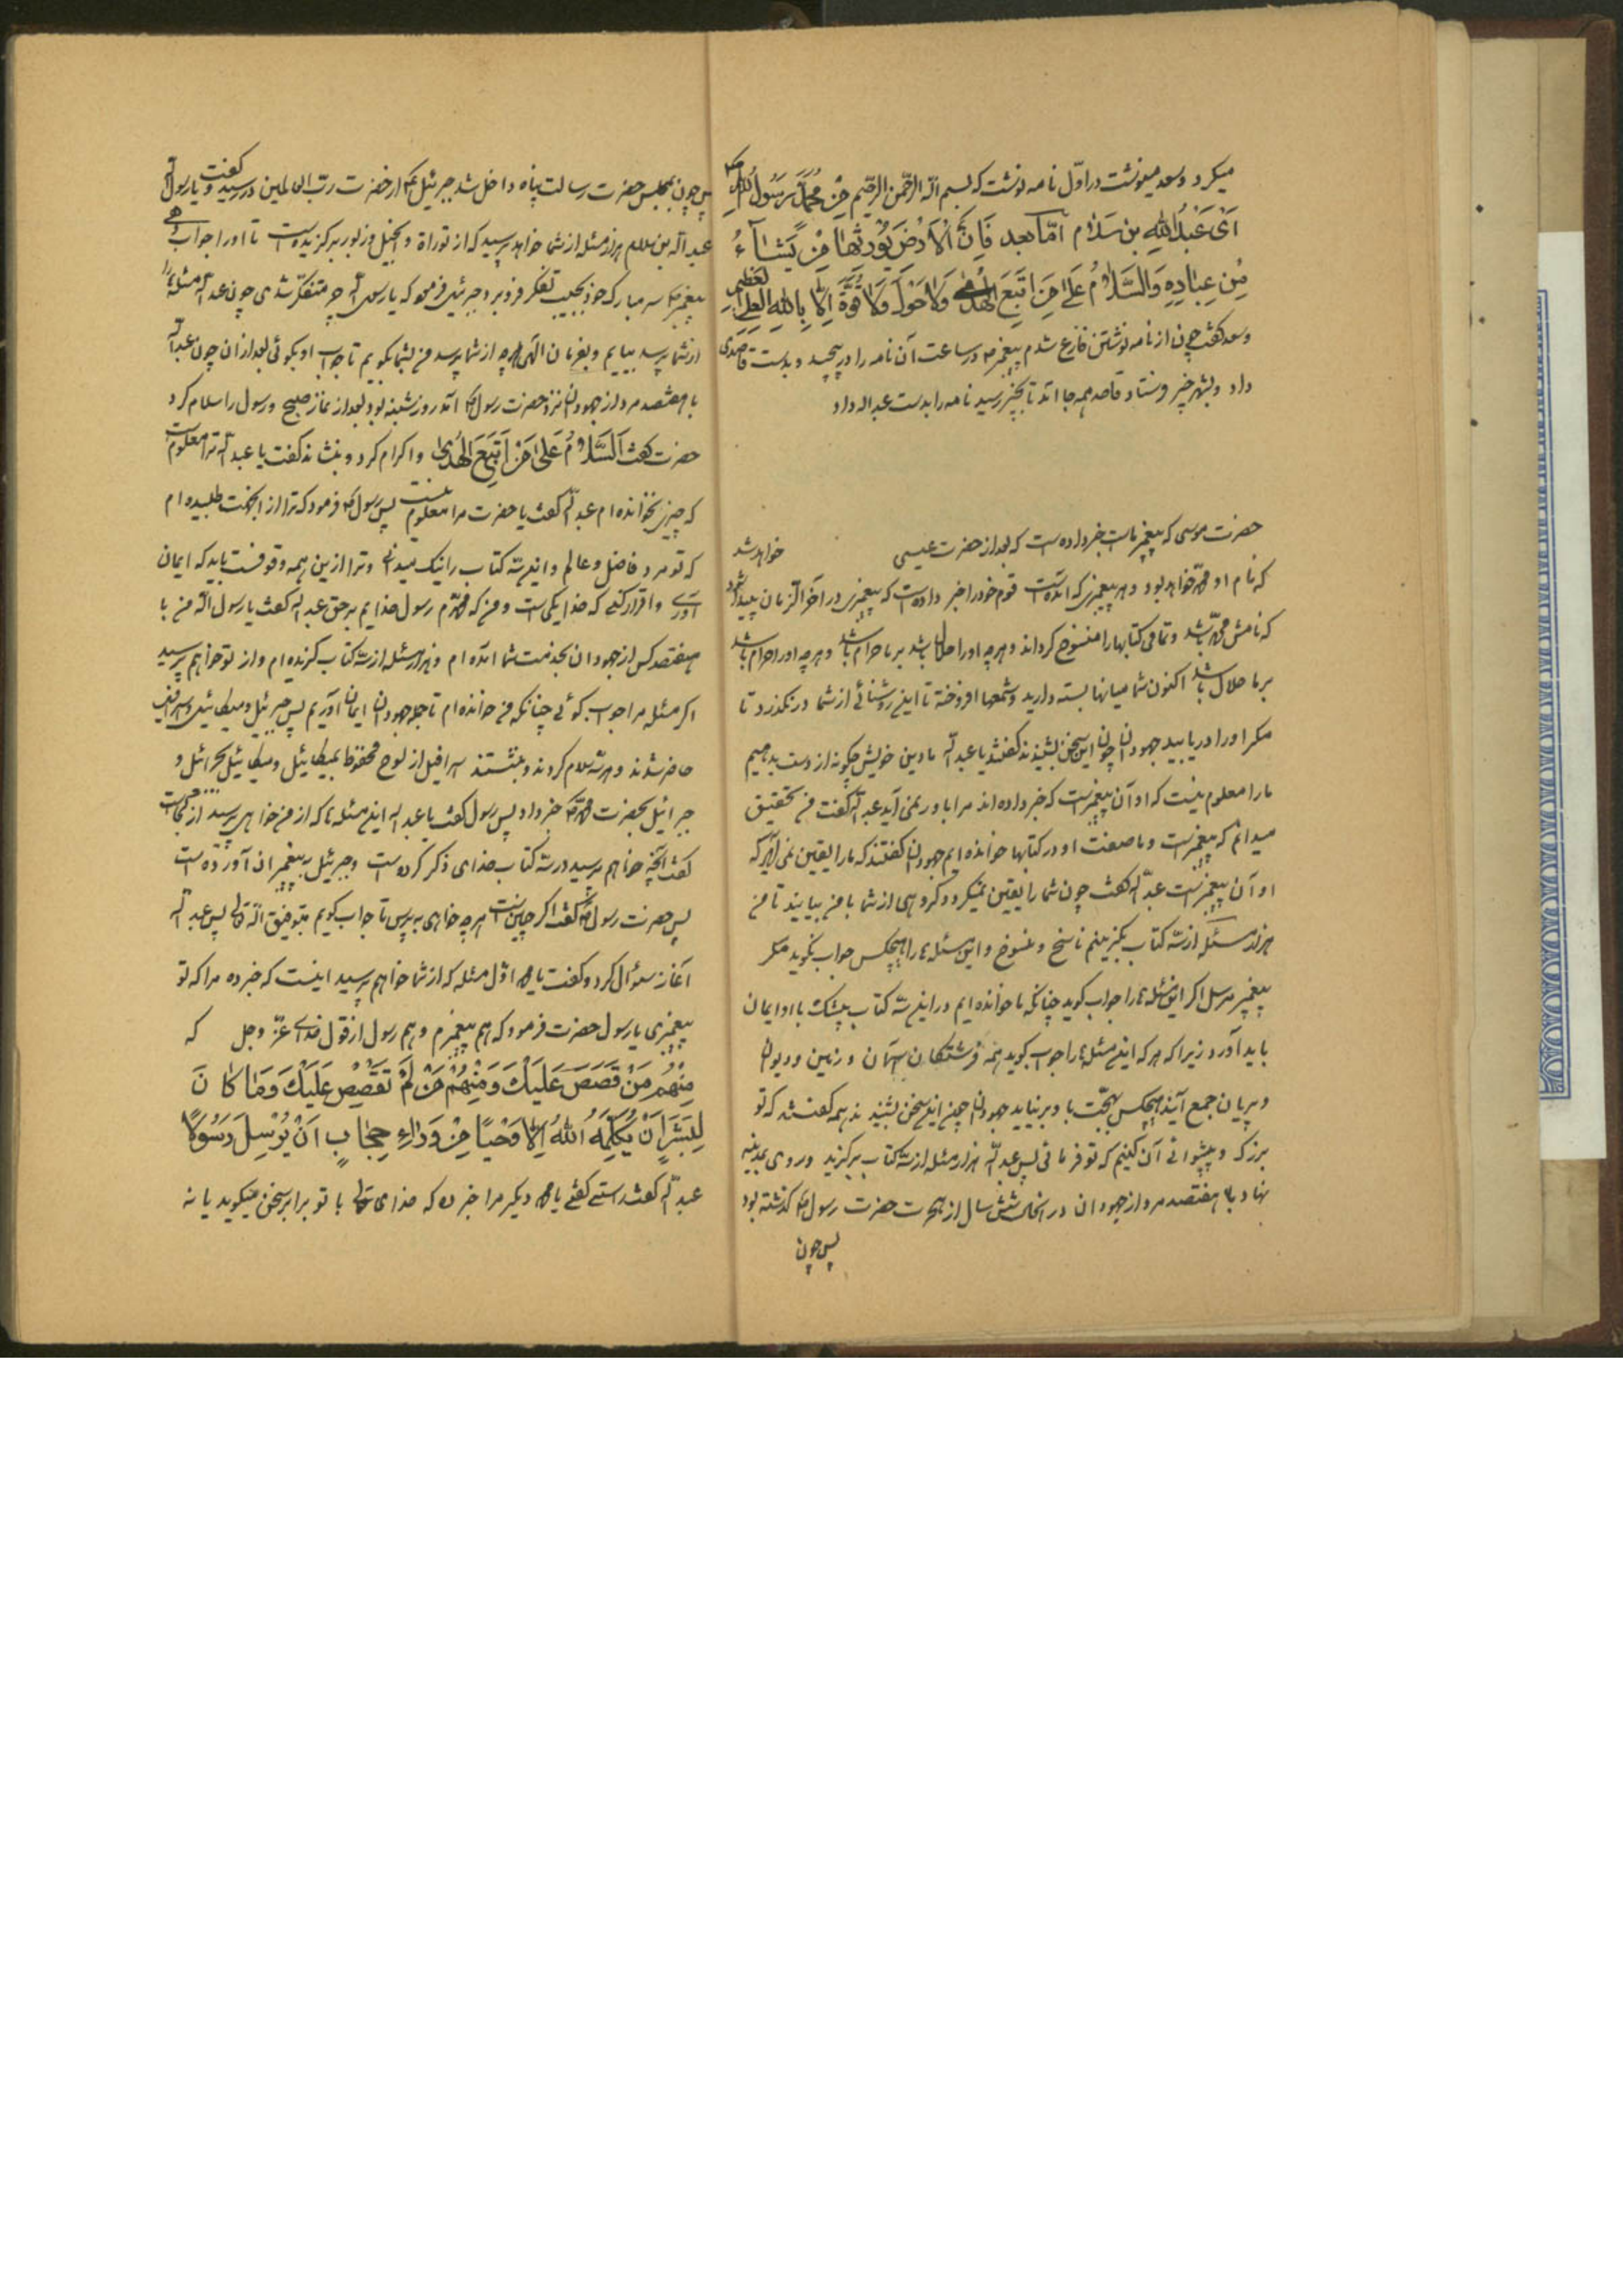 میکرد و سعد مینوشت در اول نامه نوشت که بسم الله الرحمن الرحیم مِنْ مُحَمَّدٍ رَسُولُ اللهِ
اَیْ عَبْدُ اللهِ بن سَلام اَمّا بعد فَاِنَّ الْاَرْضَ یُورِثُها مَنْ یَشآءُ
مِنْ عِبادِهِ وَالسَّلامُ عَلیٰ مَنِ اتَّبَعَ الْهُدیٰ وَلا حَوْلَ وَلا قُوَّةَ اِلّا بِاللهِ العَلِیِّ العَظیمِ
و سعد گفت چون از نامه نوشتن فارغ شدم پیغمبر در ساعت آن نامه را در پیچید و بدست قاصدی
داد و بشهر خیبر فرستاد قاصد همه جا آمد تا بخیبر رسید نامه را بدست عبدالله داد
حضرت موسی که پیغمبر ماست خبر داده است که بعد از حضرت عیسی خواهد شد
که نام او محمد خواهد بود و هر پیغمبری که آمده است قوم خود را خبر داده است که پیغمبری در آخر الزمان پیدا شود
که نامش محمد باشد و تمامی کتابها را منسوخ گرداند و هرچه او را حلال باشد بر ما حرام باشد و هرچه او را حرام باشد
بر ما حلال باشد اکنون شما میانها بسته دارید و شمعها افروخته تا این روشنائی از شما در نگذرد تا
مگر او را دریابید جهودان چون این سخن بشنیدند گفتند یا عبدالله ما دین خویش چگونه از دست بدهیم
ما را معلوم نیست که او آن پیغمبر است که خبر داده اند مرا باور نمی آید عبدالله گفت من بتحقیق
میدانم که پیغمبر است و ما صفت او در کتابها خوانده ایم جهودان گفتند که ما را یقین نمی گردد که
او آن پیغمبر است عبدالله گفت چون شما را یقین نمیگردد گروهی از شما با من بیایند تا من
هزار مسئله از سه کتاب بگزینم ناسخ و منسوخ و این مسئله ها را هیچکس جواب نگوید مگر
پیغمبر مرسل اگر این مسئله ها را جواب گوید چنانکه ما خوانده ایم در این سه کتاب بیشک با او ایمان
باید آورد زیرا که هر که این مسئله ها را جواب گوید همه فرشتگان آسمان و زمین و دیوان
و پریان جمع آیند هیچکس بحجت با او بر نیاید جهودان چون این سخن بشنیدند همه گفتند که تو
بزرگ و پیشوائی آن کنیم که تو فرمائی پس عبدالله هزار مسئله از سه کتاب برگزید و روی بمدینه
نهاد با هفتصد مرد از جهودان در انحال شش سال از هجرت حضرت رسول گذشته بود
پس چون
پس چون بمجلس حضرت رسالت پناه داخل شد جبرئیل از حضرت رب العالمین در رسید و گفت یا رسول الله
عبدالله بن سلام هزار مسئله از شما خواهد پرسید که از توراة و انجیل و زبور برگزیده است تا او را جواب دهی
پیغمبر سر مبارک خود بجیب تفکر فرو برد جبرئیل فرمود که یا رسول الله چرا متفکر شدی چون عبدالله مسئله ها
از شما پرسد بیایم و بفرمان الهی هرچه از شما پرسد من بشما بگویم تا جواب او بگوئی بعد از ان چون عبدالله
با هفتصد مرد از جهودان نزد حضرت رسول آمد روز شنبه بود بعد از نماز صبح و رسول را سلام کرد
حضرت گفت اَلسَّلامُ عَلیٰ مَنِ اتَّبَعَ الْهُدیٰ و اکرام کرد و بنشاند گفت یا عبدالله ترا معلوم است
که چیزی بخوانده ام عبدالله گفت یا حضرت مرا معلوم نیست پس رسول فرمود که ترا از انجهت طلبیده ام
که تو مرد فاضل و عالم و این سه کتاب را نیک میدانی و ترا از این همه وقوفست باید که ایمان
آوری و اقرار کنی که خدا یکی است و من که محمدم رسول خدایم برحق عبدالله گفت یا رسول الله من با
هفتصد کس از جهودان بخدمت شما آمده ام و هزار مسئله از سه کتاب گزیده ام و از تو خواهم پرسید
اگر مسئله مرا جواب گوئی چنانکه من خوانده ام تا جمله جهودان ایمان آوریم پس جبرئیل و میکائیل و اسرافیل
حاضر شدند و هر سه سلام کردند و بنشستند اسرافیل از لوح محفوظ بمیکائیل و میکائیل بجبرائیل و
جبرائیل بحضرت محمد خبر داد پس رسول گفت یا عبدالله این مسئله ها که از من خواهی پرسید از کجاست
گفت آنچه خواهم پرسید در سه کتاب خدای ذکر کرده است و جبرئیل به پیغمبران آورده است
پس حضرت رسول گفت اگر چنین است هرچه خواهی بپرس تا جواب گویم بتوفیق الله تعالی پس عبدالله
آغاز سئوال کرد و گفت یا محمد اول مسئله که از شما خواهم پرسید اینست که خبر ده مرا که تو
پیغمبری یا رسول حضرت فرمود که هم پیغمبرم و هم رسول از قول خدای عز وجل که
مِنْهُمْ مَنْ قَصَصَ عَلَیْكَ وَمِنْهُمْ مَنْ لَمْ تَقْصُصْ عَلَیْكَ وَما کانَ
لِبَشَرٍ اَنْ یُکَلِّمَهُ اللهُ اِلّا وَحْیًا مِنْ وَراءِ حِجابٍ اَنْ یُرْسِلَ رَسُولًا
عبدالله گفت راست گفتی یا محمد دیگر مرا خبر ده که خدای تعالی با تو برابر سخن میگوید یا نه